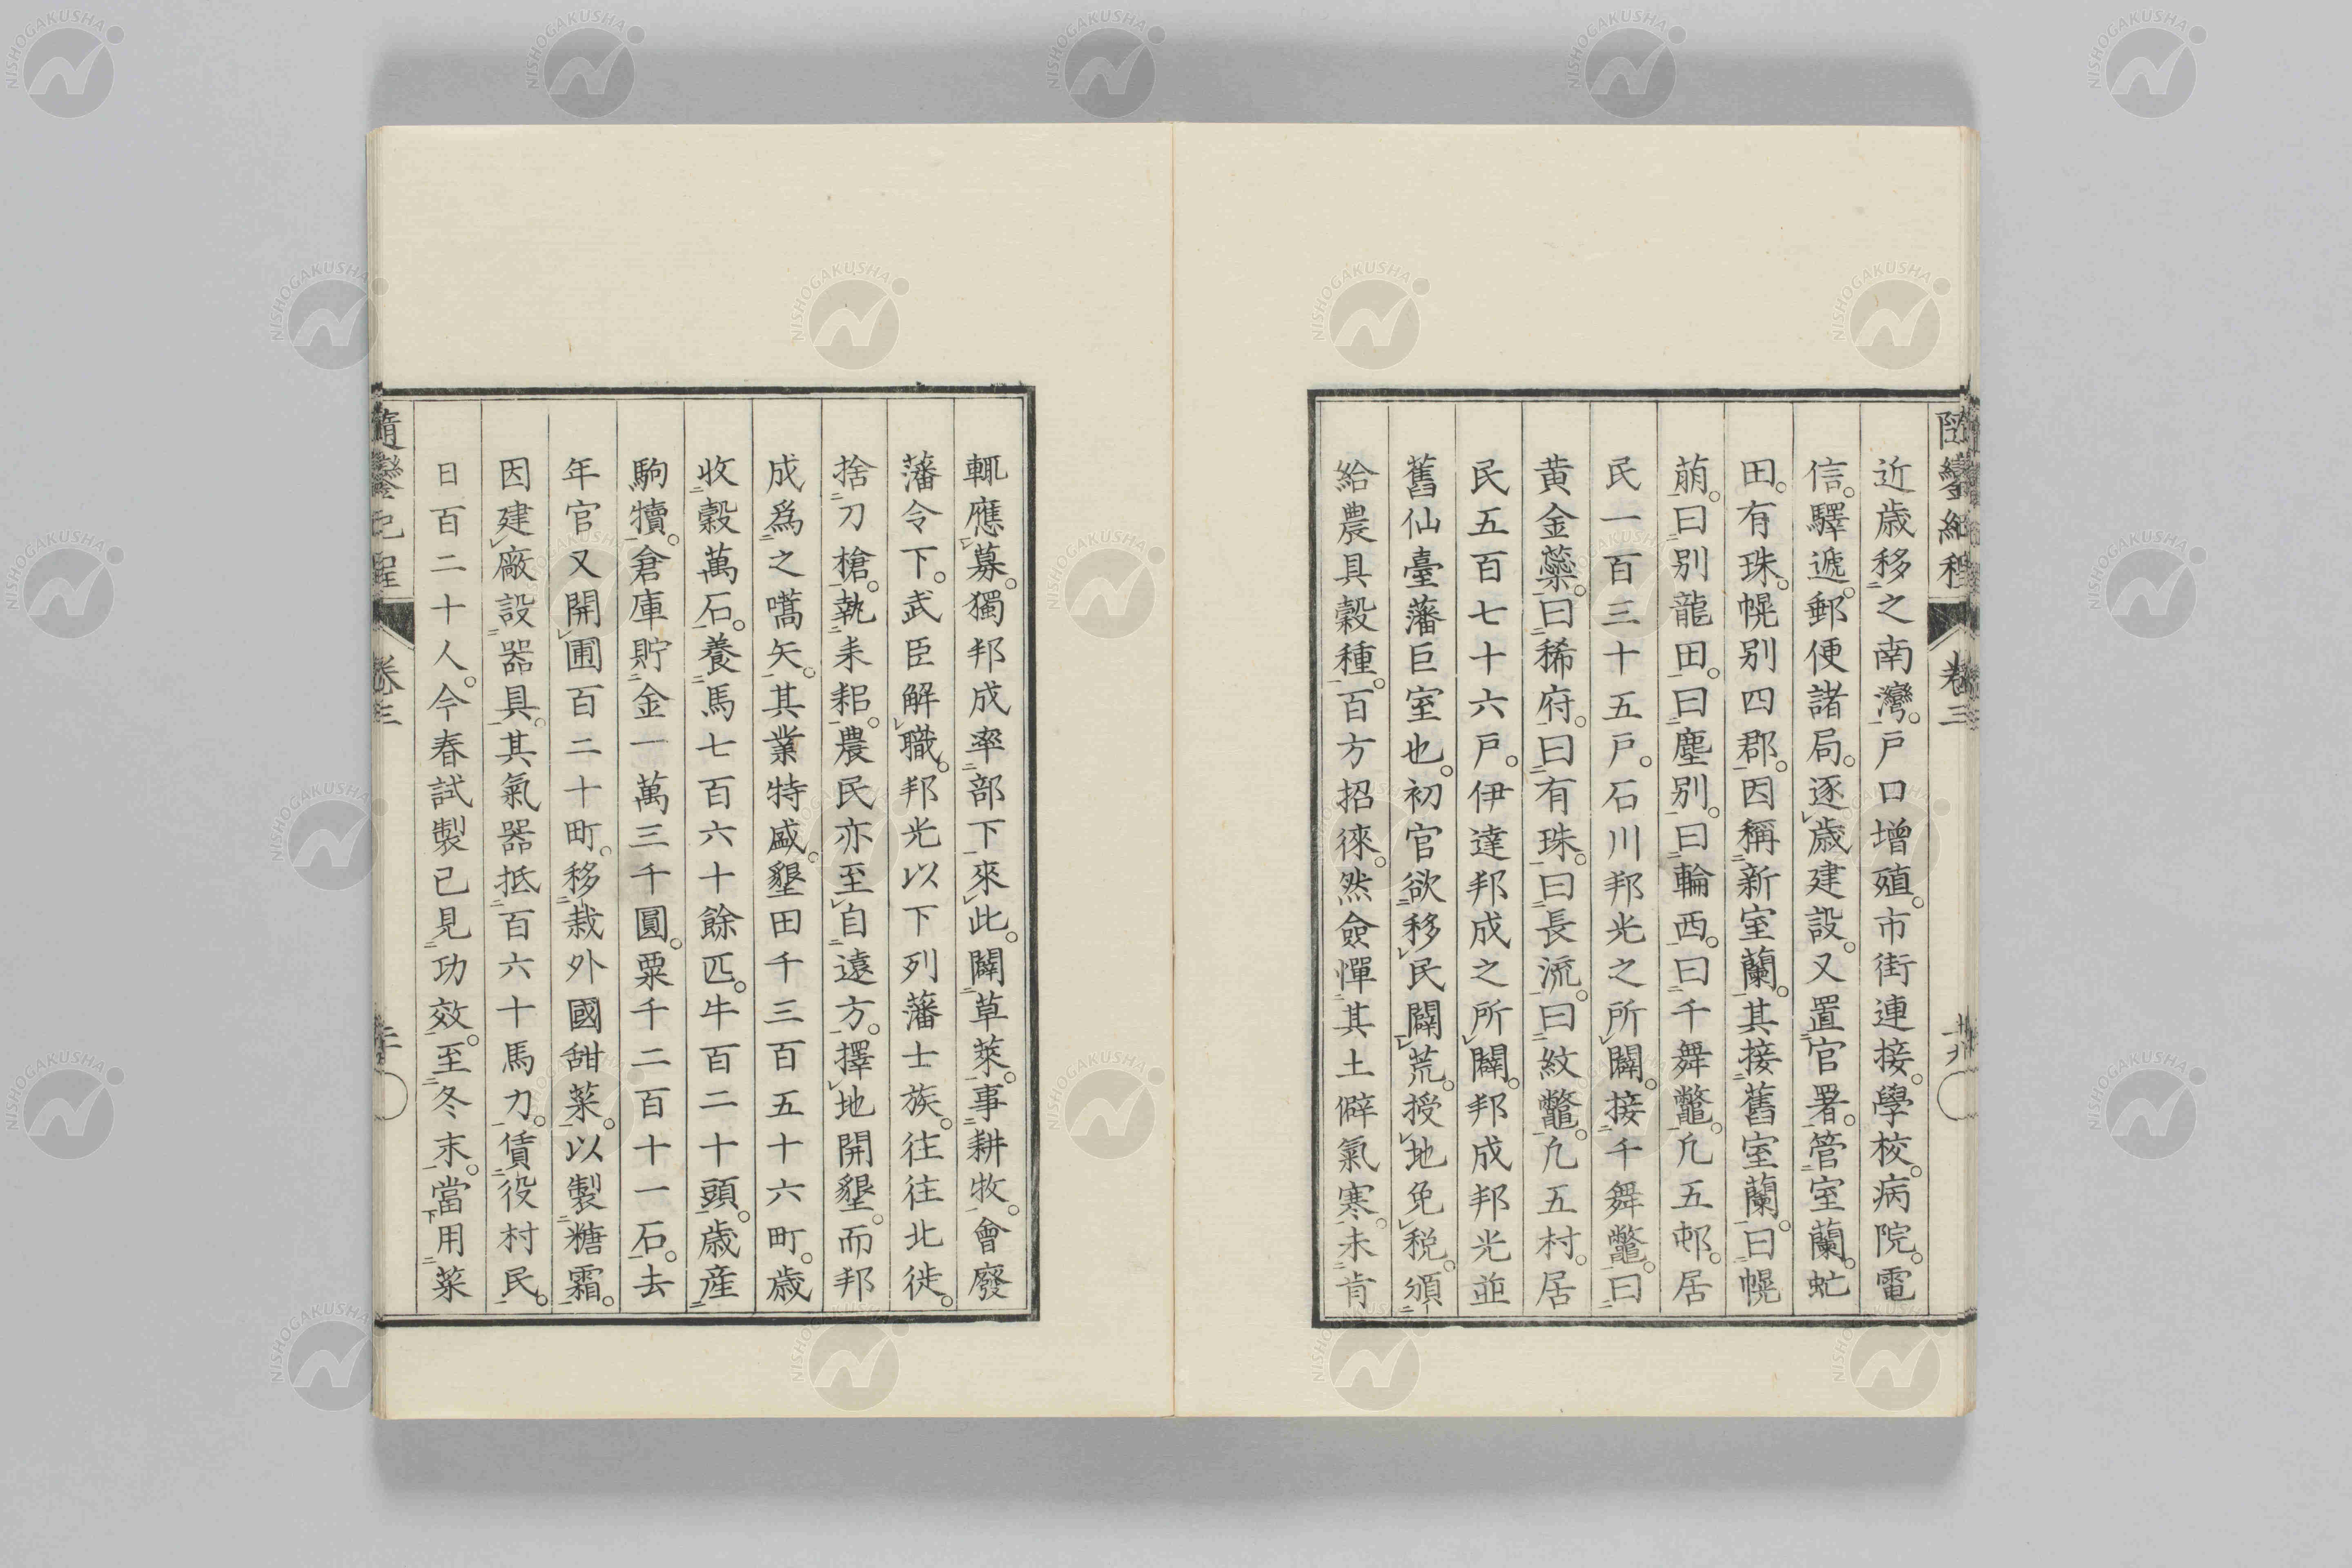 隨鑾紀程 卷三
近歳移之南灣。戸口增殖。市街連接。學校。病院。電
信。驛遞。郵便諸局。逐歳建設。又置官署。管室蘭。虻
田。有珠。幌別四郡。因稱新室蘭。其接舊室蘭。曰幌
萠。曰別龍田。曰塵別。曰輪西。曰千舞鼈。凢五邨。居
民一百三十五戸。石川邦光之所闢。接千舞鼈。曰
黄金蘂。曰稀府。曰有珠。曰長流。曰紋鼈。凢五村。居
民五百七十六戸。伊達邦成之所闢。邦成邦光並
舊仙臺藩巨室也。初官欲移民闢荒。授地免税。頒
給農具穀種。百方招徠。然僉憚其土僻氣寒。未肯
輒應募。獨邦成率部下來此。闢草萊。事耕牧。會廢
藩令下。武臣解職。邦光以下列藩士族。往往北徙。
捨刀槍。執耒耜。農民亦至自遠方。擇地開墾。而邦
成爲之嚆矢。其業特盛。墾田千三百五十六町。歳
收穀萬石。養馬七百六十餘匹。牛百二十頭。歳産
駒犢。倉庫貯金一萬三千圓。粟千二百十一石。去
年官又開圃百二十町。移栽外國甜菜。以製糖霜。
因建廠設器具。其氣器抵百六十馬力。賃役村民。
日百二十人。今春試製已見功效。至冬末。當用菜
隨鑾紀程 卷三